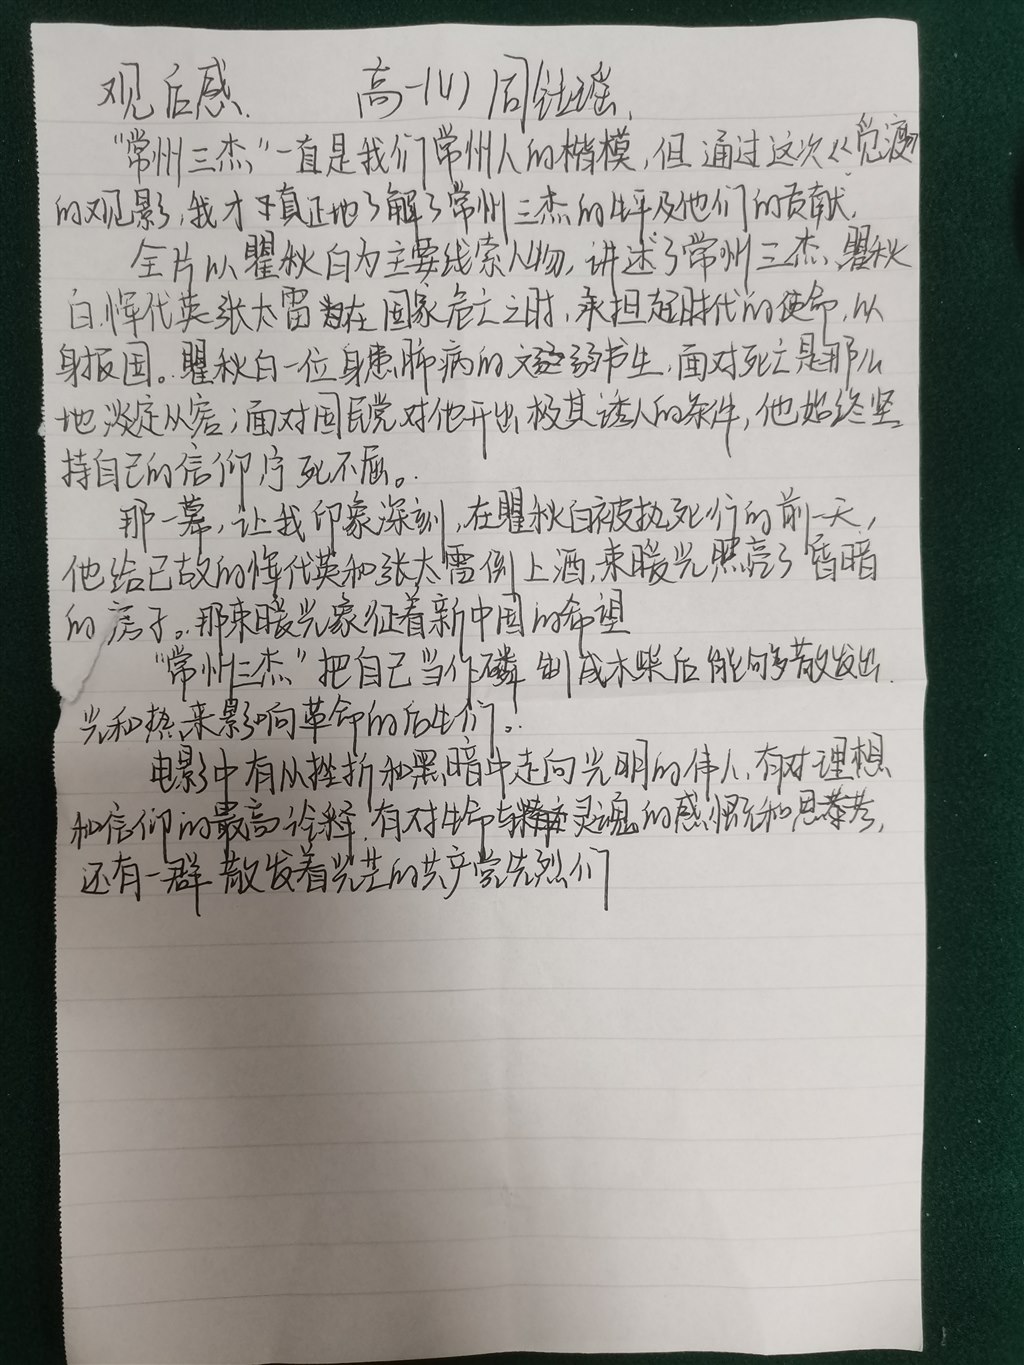 观后感. 高一(4) 周钰瑶.
“常州三杰”一直是我们常州人的楷模,但通过这次《觅渡》
的观影,我才真正地了解了常州三杰的生平及他们的贡献.
全片以瞿秋白为主要线索人物,讲述了常州三杰、瞿秋
白.恽代英.张太雷在国家危亡之时,承担起时代的使命,以
身报国。瞿秋白一位身患肺病的文弱书生,面对死亡是那么
地淡定从容;面对国民党对他开出极其诱人的条件,他始终坚
持自己的信仰宁死不屈。
那一幕,让我印象深刻,在瞿秋白被执死行的前一天,
他给已故的恽代英和张太雷倒上酒,束暖光照亮了昏暗
的房子。那束暖光象征着新中国的希望
“常州三杰”把自己当作磷制成木柴后能够散发出
光和热来影响革命的后生们。
电影中有从挫折和黑暗中走向光明的伟人,有对理想
和信仰的最高诠释,有对生命与灵魂的感慨和思考,
还有一群散发着光芒的共产党先烈们